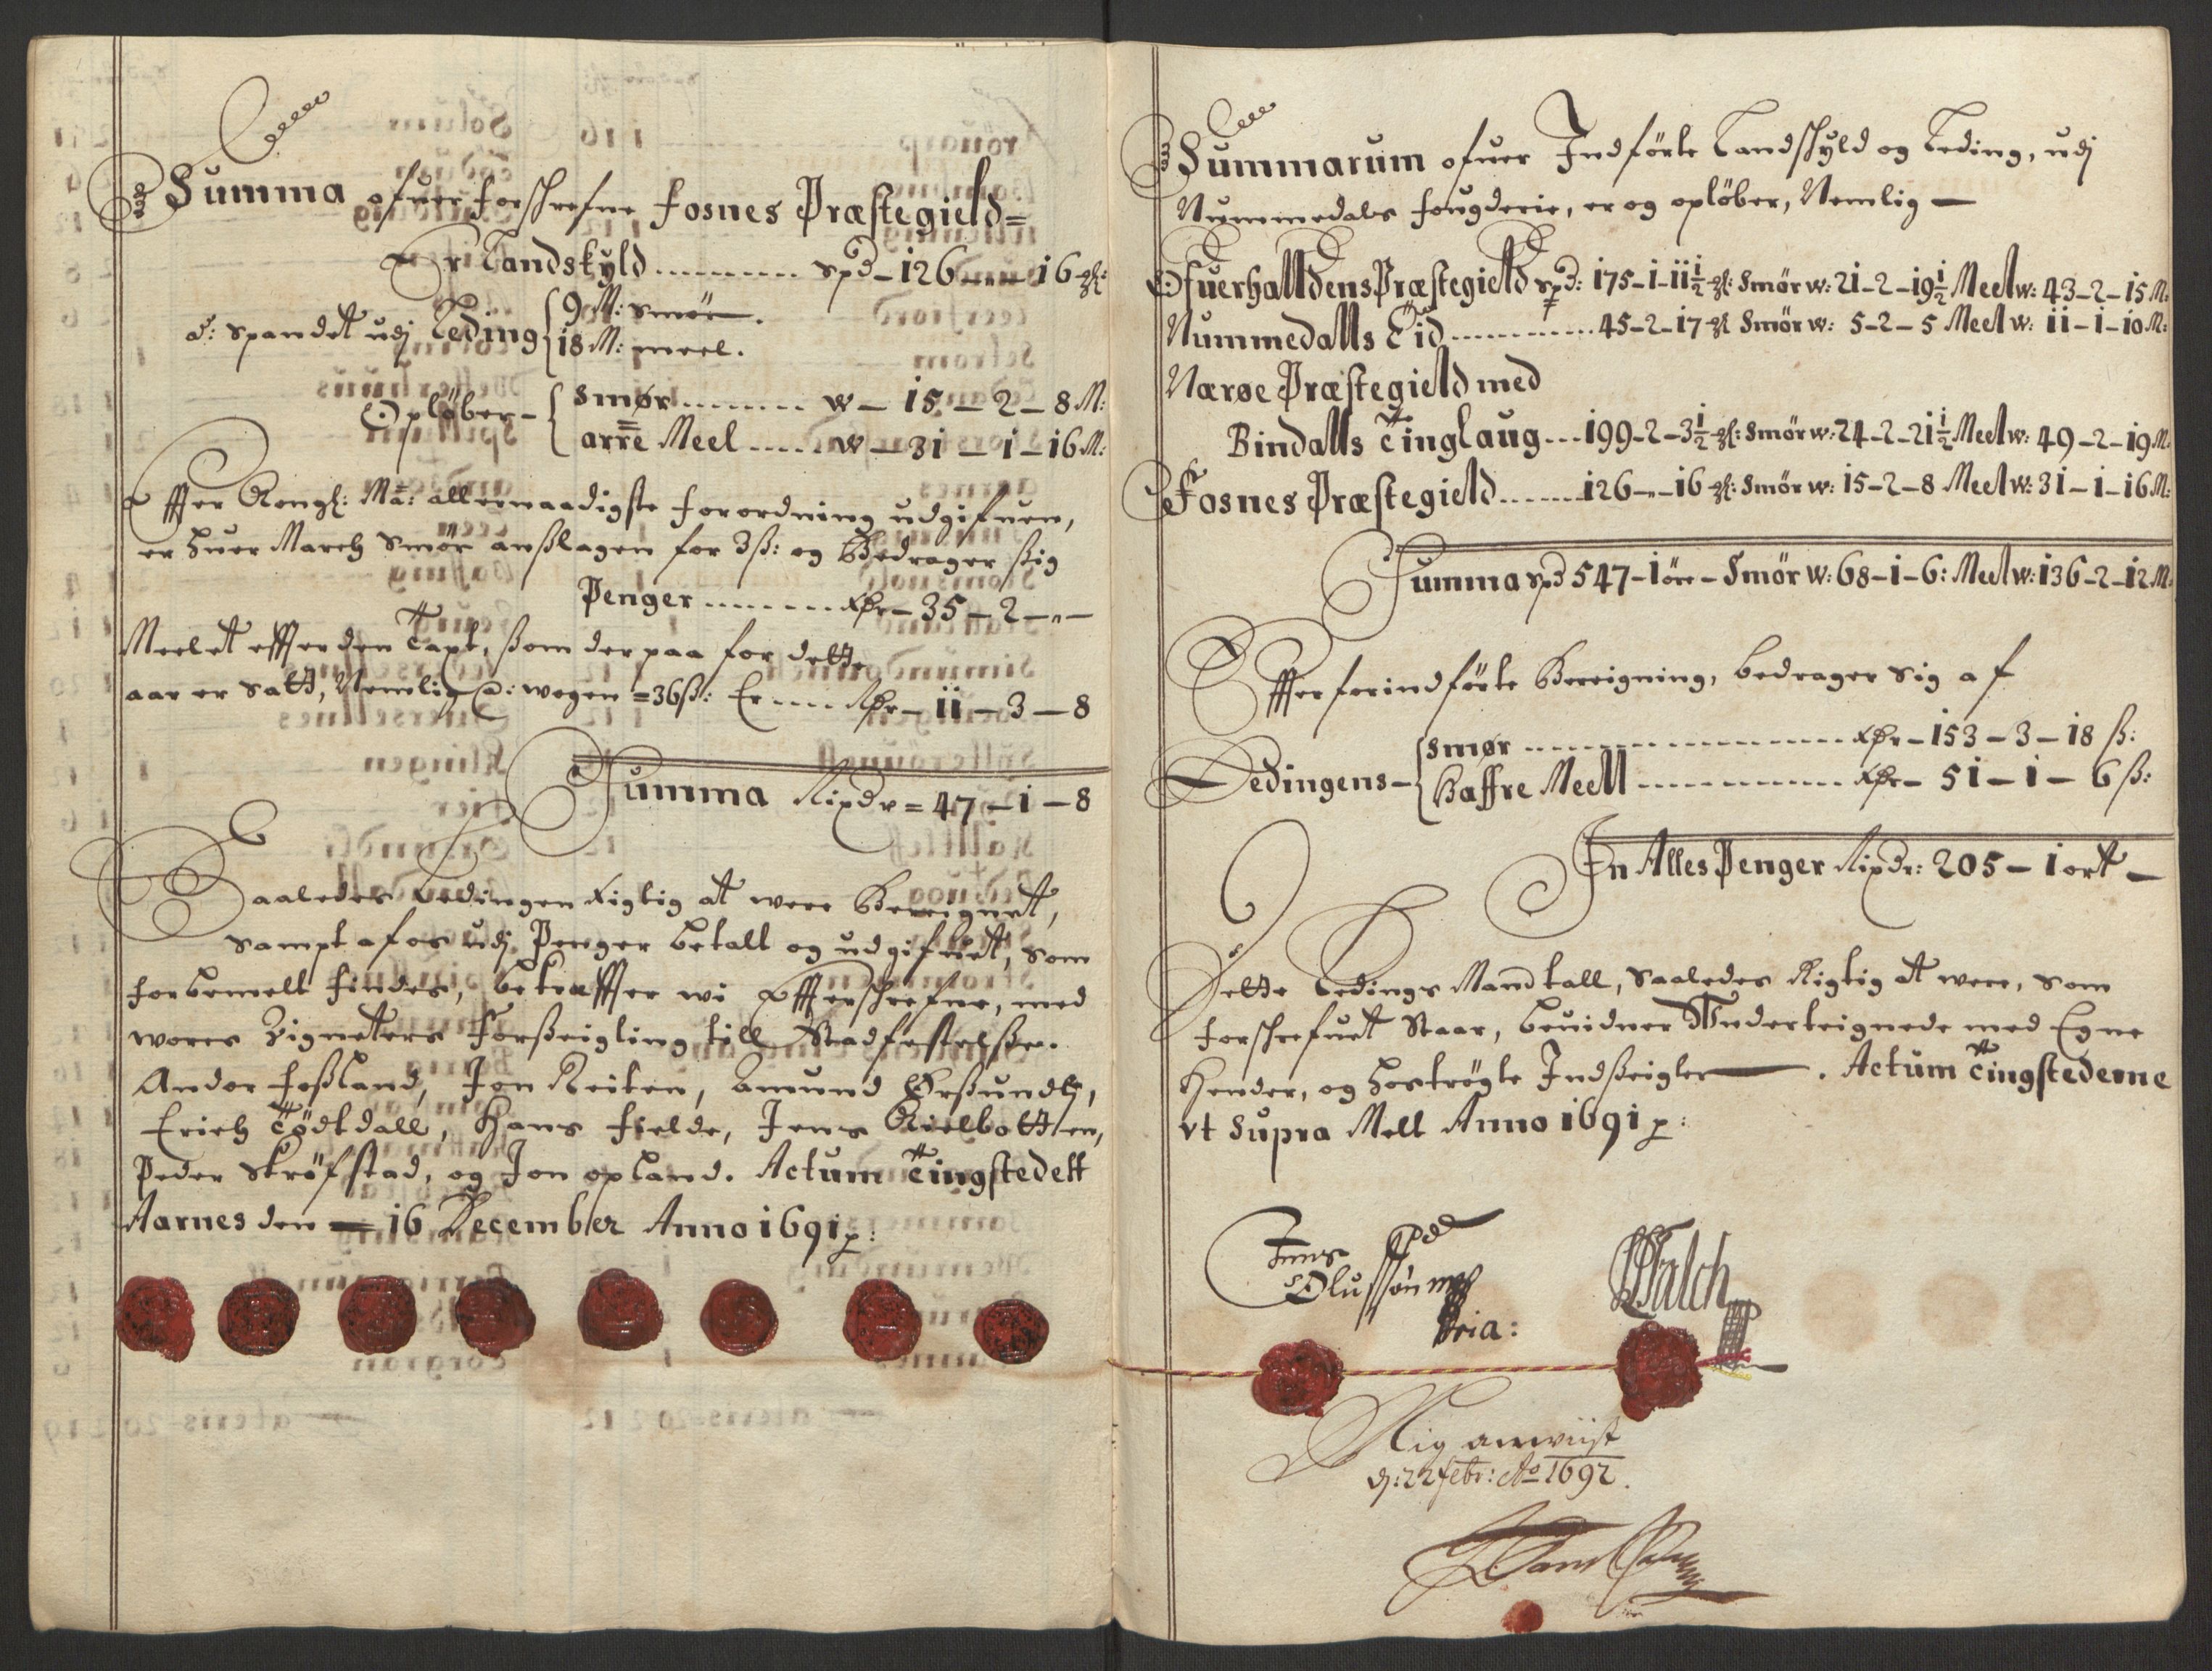 Summa ofuer forschrefne Fosnes Præstegield=
Er Landskyld .......... spd – 126 – „ – 16 ♃:
à: spandet udj Leding { 9 M: smör.
18 M: meel.
Opløber – { smør ........ w – 15 – 2 – 8 M:
arre Meel ..... w – 31 – 1 – 16 M:
Effter Kongl: Ma: allernaadigste forordning udgifuen,
er huer March Smör anßlagen for 3 ß: og Bedrager ßig
Penger ........ Rdr – 35 – 2 – „ –
Meelet effter den Taxt, ßom der paa for dette
aar er satt, Nemlig @: wogen = 36 ß: Er .... Rdr – 11 – 3 – 8
Summa Rixdr = 47 – 1 – 8
Saaledes Ledingen Rigtig at were Bereignett,
sampt af os udj Penger betalt og udgifuet, som
forbemelt findes, bekræffter wi Effterschrefne, med
wores Zigneters Forßeigling till Stadfestelße.
Andor Foßland, Jon Reiten, Amund Ørßundli,
Erich Tödtdall, Hans Fielde, Jens Kielbotten,
Peder Skröfstad, og Jon Opland. Actum Tingstedett
Aarnes den 16 December Anno 1691 p:
Summarum ofuer Indförte Landskyld og Leding, udj
Nummedals fougderie, er og oplöber, Nemlig –
Ofuerhalldens Præstegield spd: 175–1–11½ ♃: Smör w: 21–2–19½ Meel w: 43–2–15 M:
Nummedalls Eid ............ 45–2–17 ♃ Smör w: 5–2–5 Meel w: 11–1–10 M:
Nærøe Præstegield med
Bindalls Tinglaug ... 199–2–3½ ♃: Smör w: 24–2–21½ Meel w: 49–2–19 M:
Fosnes Præstegield ....... 126–„–16 ♃: Smör w: 15–2–8 Meel w: 31–1–16 M:
Summa spd 547–1 öre – Smör w: 68–1–6: Meel w: 136–2–12 M:
Effter forindförte Bereigning, bedrager sig af
Ledingens – { Smør .................. Rdr – 153 – 3 – 18 ß:
Haffre Meell ............ Rdr – 51 – 1 – 6 ß:
In Alles Penger Rixdr: 205 – 1 ort –
Dette Ledings Mandtall, saaledes Rigtig at were, som
forschrefuet Staar, beuidner Underteignede med Egne
Hender, og hoströgte Indßeigler –––. Actum Tingstederne
vt Supra Melt Anno 1691 p:
Jens
Olufsøn mp
pria:
Walch
Rig anwiist
d: 22 febr: Ao 1692.